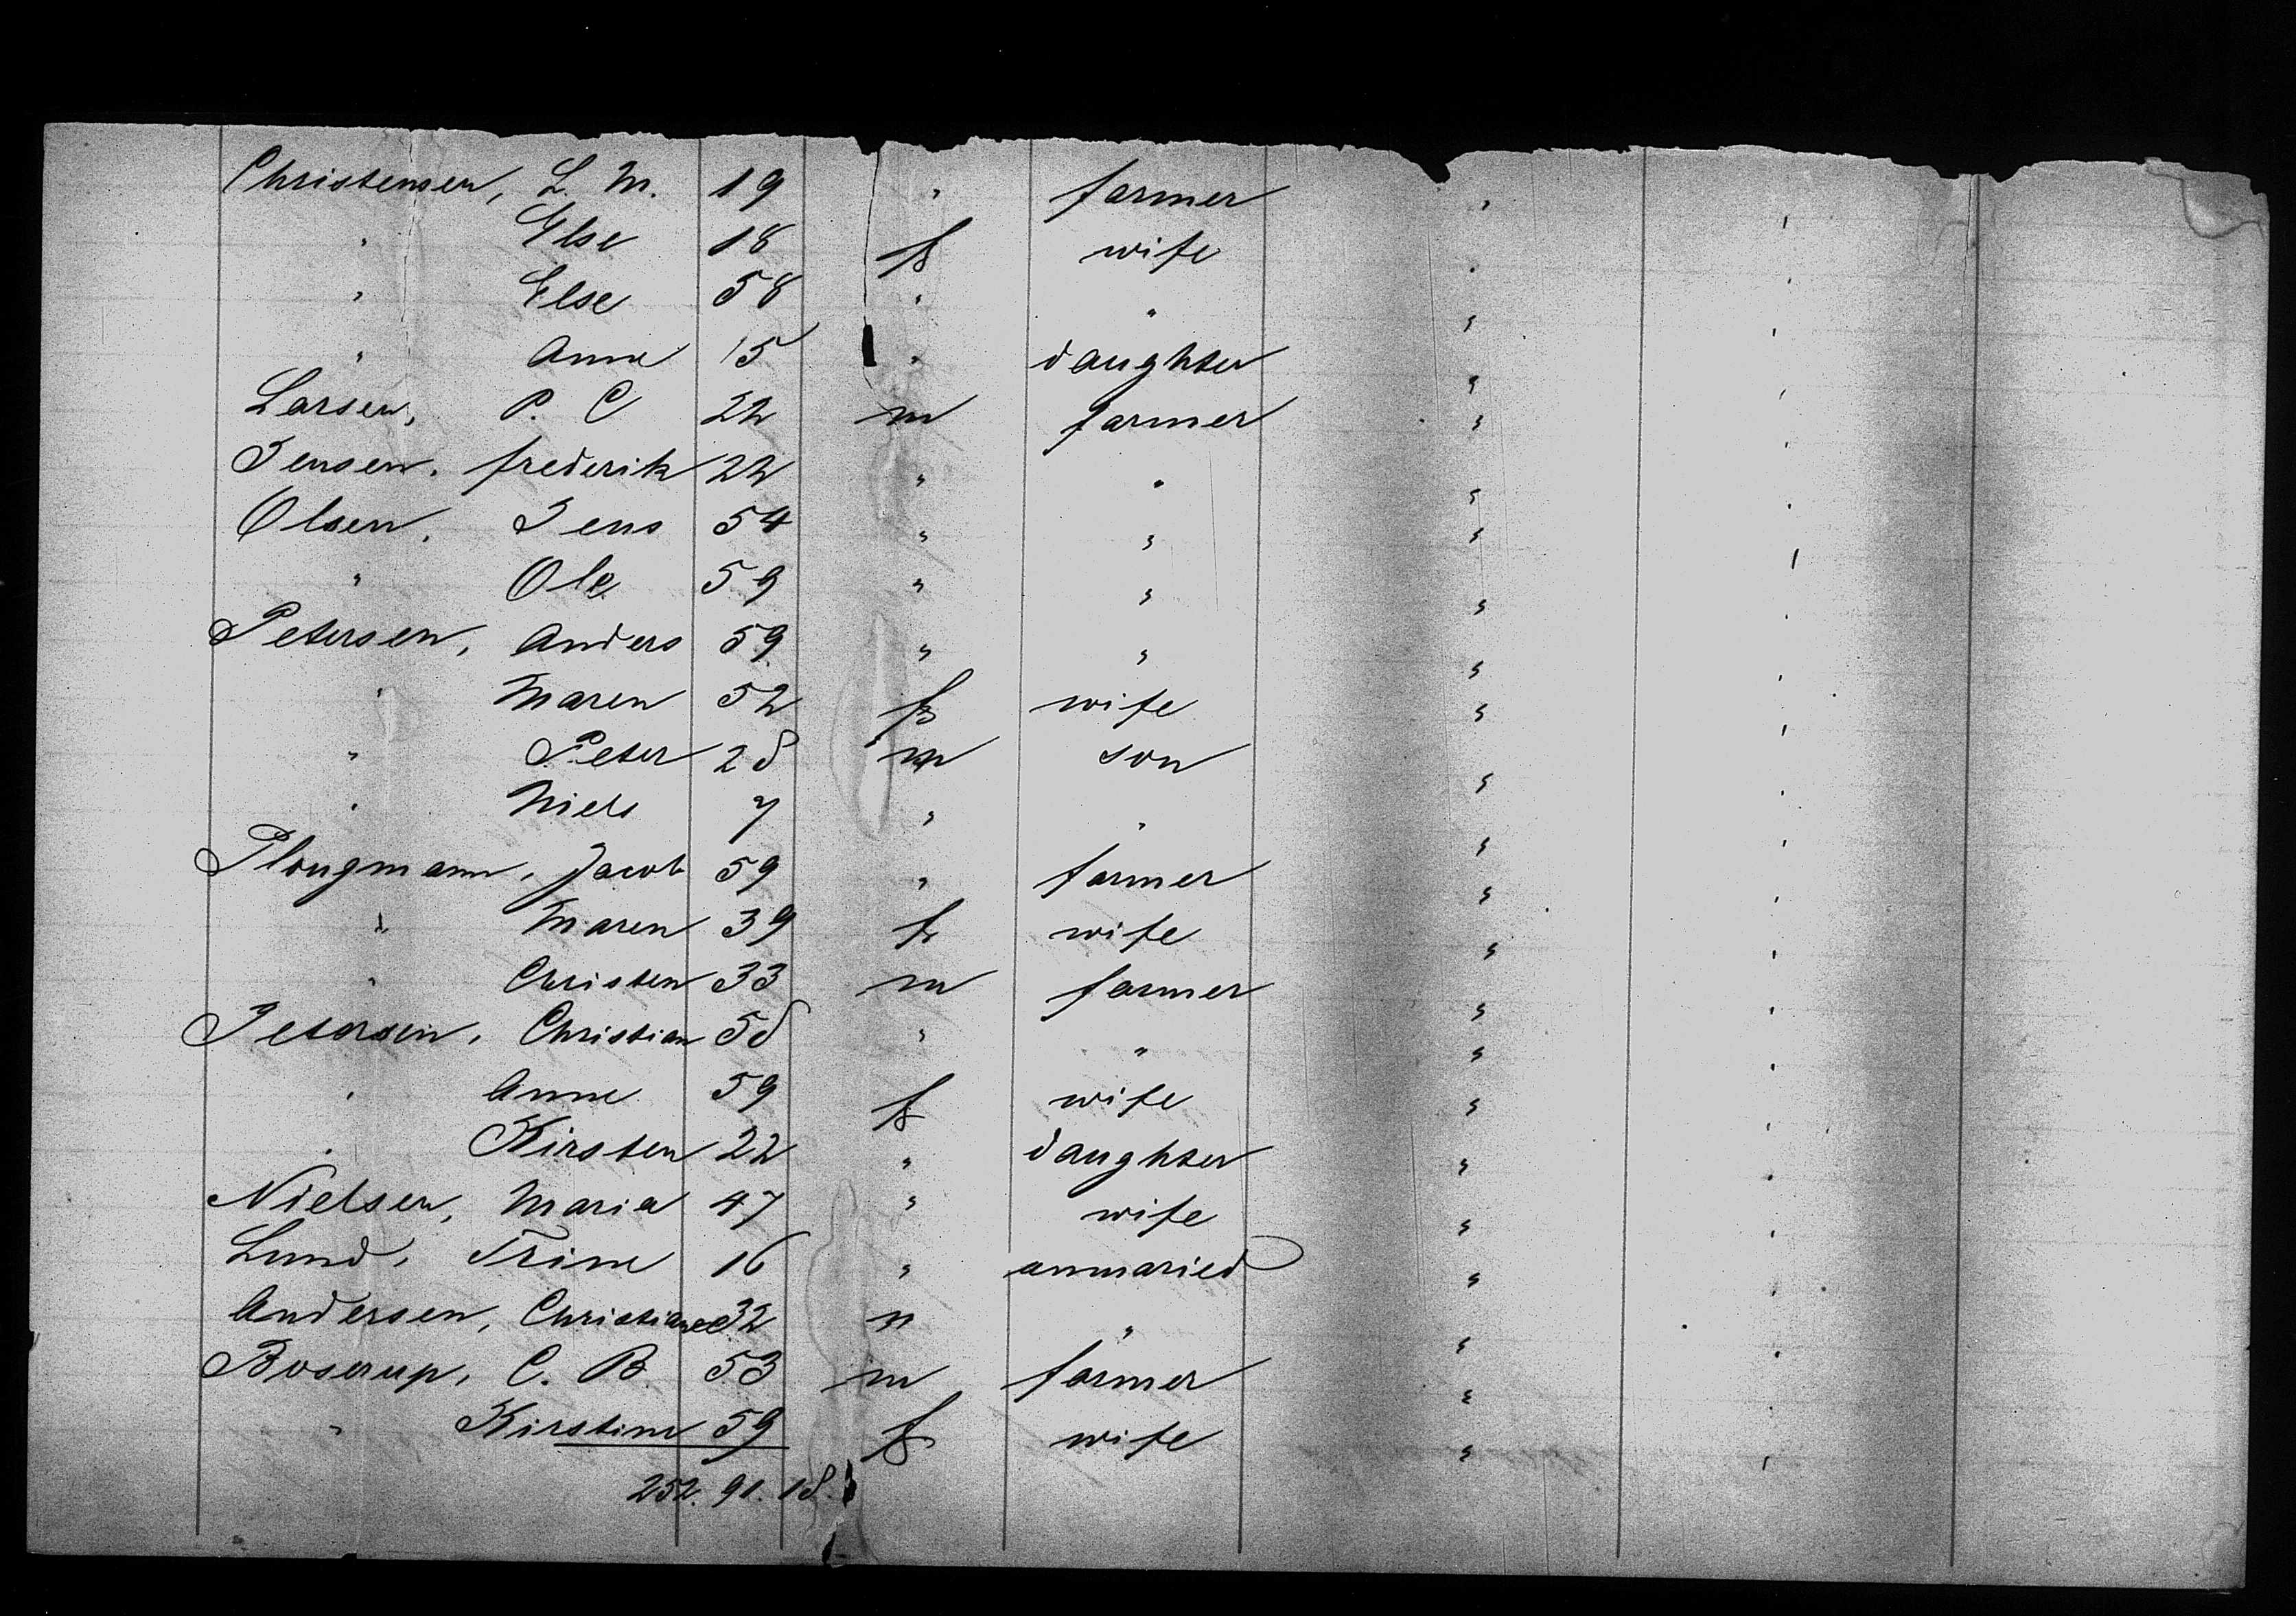 Christensen, L. M. 19 " farmer " "
" Else 18 f wife " "
" Else 58 " " " "
" Anne 15 " daughter " "
Larsen, P. C 22 m farmer " "
Jensen, frederik 22 " " " "
Olsen, Jens 54 " " " "
" Ole 59 " " " "
Petersen, Anders 59 " " " "
" Maren 52 f wife " "
" Peter 28 m son " "
" Niels 7 " " " "
Plougmann, Jacob 59 " farmer " "
" Maren 39 f wife " "
" Christen 33 m farmer " "
Petersen, Christian 58 " " " "
" Anne 59 f wife " "
" Kirsten 22 " daughter " "
Nielsen, Maria 47 " wife " "
Lund, Trine 16 " unmaried " "
Andersen, Christiane 32 " " " "
Boserup, C. B. 53 m farmer " "
" Kirstine 59 f wife " "
252. 91. 18.